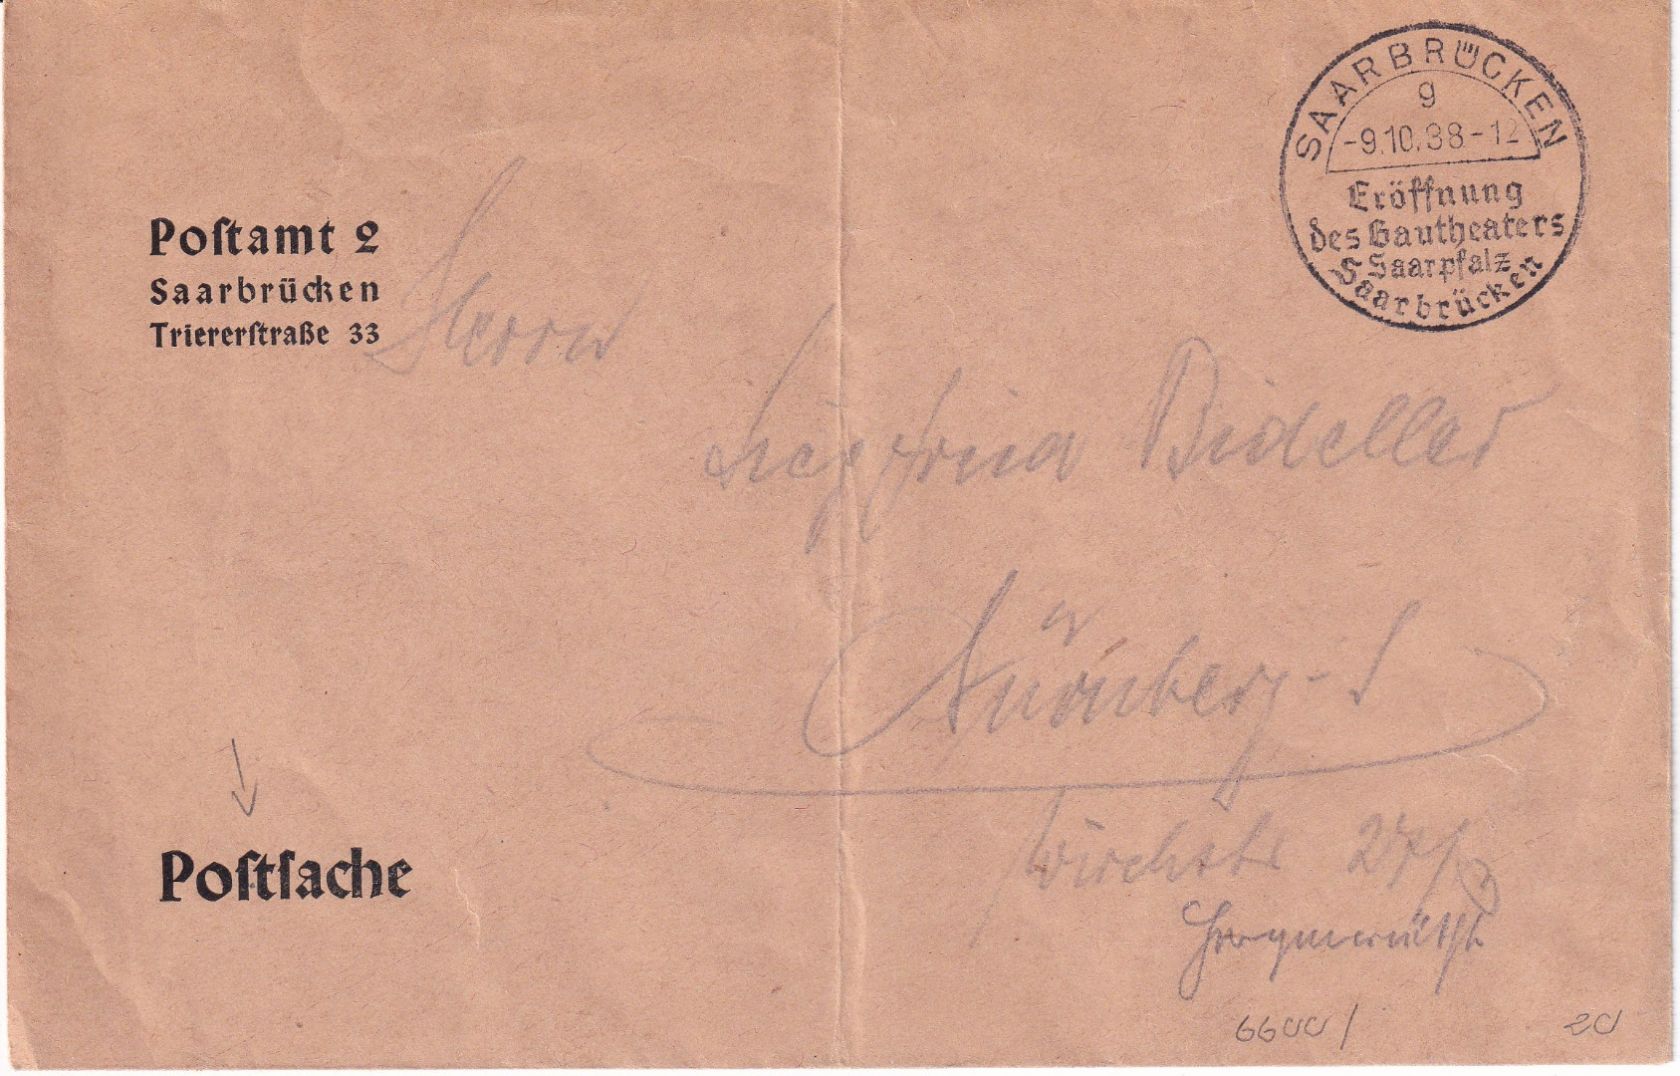 SAARBRÜCKEN
g
-9.10.38-12
Eröffnung
des Gautheaters
Saarpfalz
Saarbrücken
Poſtamt 2
Saarbrücken
Triererſtraße 33
Herrn
Siegfried Bideller
Nürnberg-S
27/
Poſtſache
6600/
20